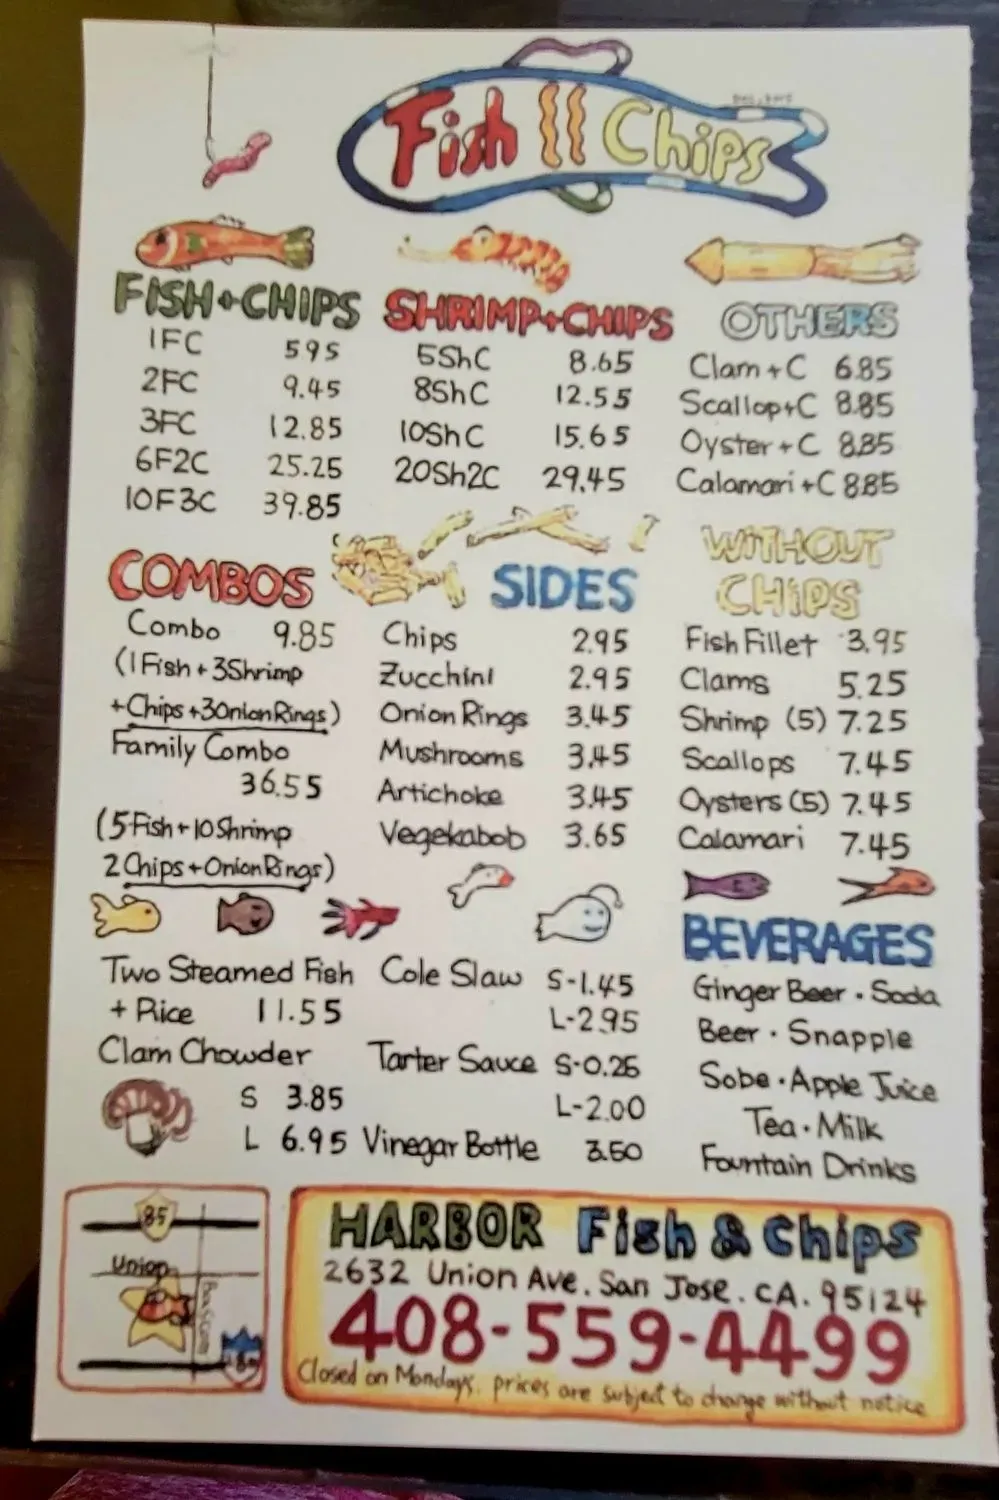 Fish Chips
FISH+CHIPS
1FC 595
2FC 9.45
3FC 12.85
6F2C 25.25
10F3C 39.85
SHRIMP+CHIPS
5ShC 8.65
8ShC 12.55
10ShC 15.65
20Sh2C 29.45
OTHERS
Clam + C 6.85
Scallop+C 8.85
Oyster + C 8.85
Calamari + C 8.85
COMBOS
Combo 9.85
(1Fish + 3Shrimp
+Chips +3OnionRings)
Family Combo
36.55
(5Fish+10Shrimp
2Chips+OnionRings)
SIDES
Chips 2.95
Zucchini 2.95
Onion Rings 3.45
Mushrooms 3.45
Artichoke 3.45
Vegekabob 3.65
WITHOUT
CHIPS
Fish Fillet 3.95
Clams 5.25
Shrimp (5) 7.25
Scallops 7.45
Oysters (5) 7.45
Calamari 7.45
Two Steamed Fish
+ Rice 11.55
Clam Chowder
S 3.85
L 6.95
Cole Slaw S-1.45
L-2.95
Tarter Sauce S-0.25
L-2.00
Vinegar Bottle 3.50
BEVERAGES
Ginger Beer · Soda
Beer · Snapple
Sobe · Apple Juice
Tea · Milk
Fountain Drinks
85
Union
HARBOR Fish & Chips
2632 Union Ave. San Jose. CA. 95124
408-559-4499
Closed on Mondays. prices are subject to change without notice